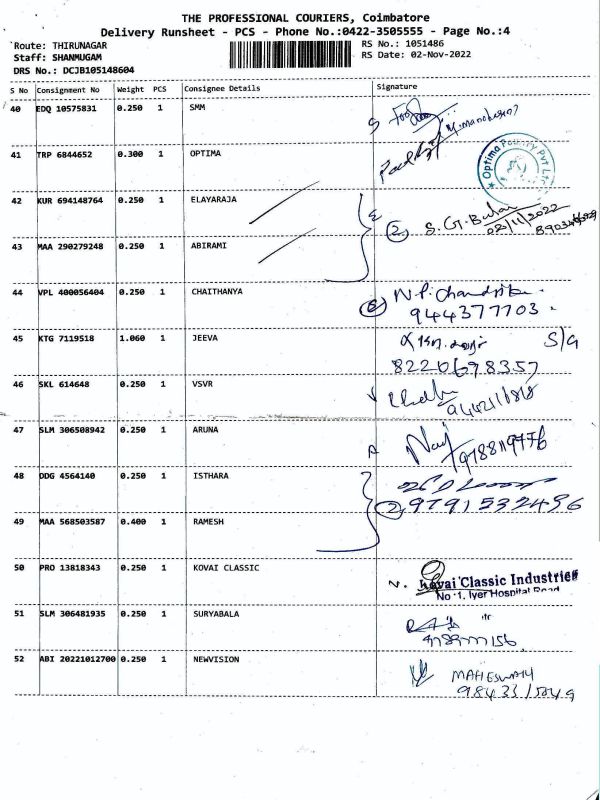 THE PROFESSIONAL COURIERS, Coimbatore
Delivery Runsheet - PCS - Phone No.:0422-3505555 - Page No.:4
Route: THIRUNAGAR
RS No.: 1051486
Staff: SHANMUGAM
RS Date: 02-Nov-2022
DRS No.: DCJB105148604
S No Consignment No Weight PCS Consignee Details Signature
40 EDQ 10575831 0.250 1 SMM
41 TRP 6844652 0.300 1 OPTIMA
Optima Poultry Pvt Ltd
42 KUR 694148764 0.250 1 ELAYARAJA
02/11/2022
43 MAA 290279248 0.250 1 ABIRAMI
44 VPL 400056404 0.250 1 CHAITHANYA
9443777703
45 KTG 7119518 1.060 1 JEEVA
8220698357
46 SKL 614648 0.250 1 VSVR
47 SLM 306508942 0.250 1 ARUNA
48 DDG 4564140 0.250 1 ISTHARA
9791532496
49 MAA 568503587 0.400 1 RAMESH
50 PRO 13818343 0.250 1 KOVAI CLASSIC
Kovai Classic Industries
No 1, Iyer Hospital Road
51 SLM 306481935 0.250 1 SURYABALA
52 ABI 20221012700 0.250 1 NEWVISION